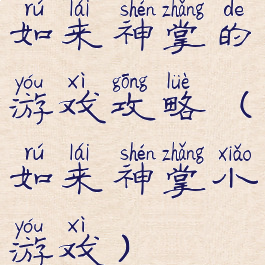 rú lái shén zhǎng de
如来神掌的
yóu xì gōng lüè
游戏攻略（
rú lái shén zhǎng xiǎo
如来神掌小
yóu xì
游戏）